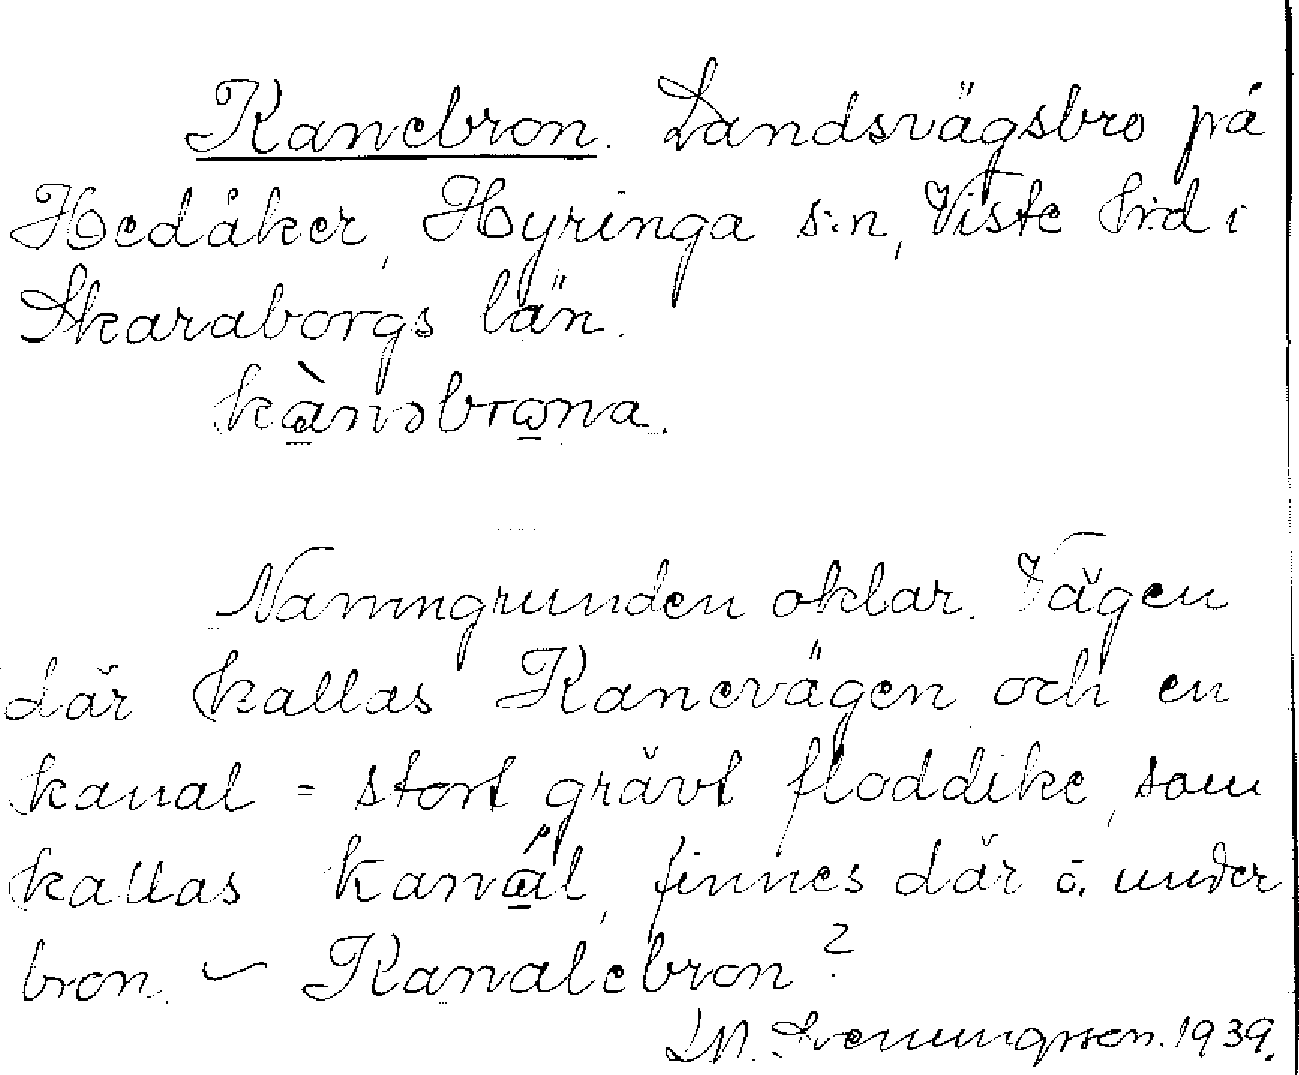 Kanebron. Landsvägsbro på
Hedåker, Hyringa s:n, Viste hrd i
Skaraborgs län.
kànəbrωna.
Namngrunden oklar. Vägen
där kallas Kanevägen och en
kanal = stort grävt floddike, som
kallas kanál, finnes där o. under
bron. — Kanalebron?
Svenungsson. 1939.